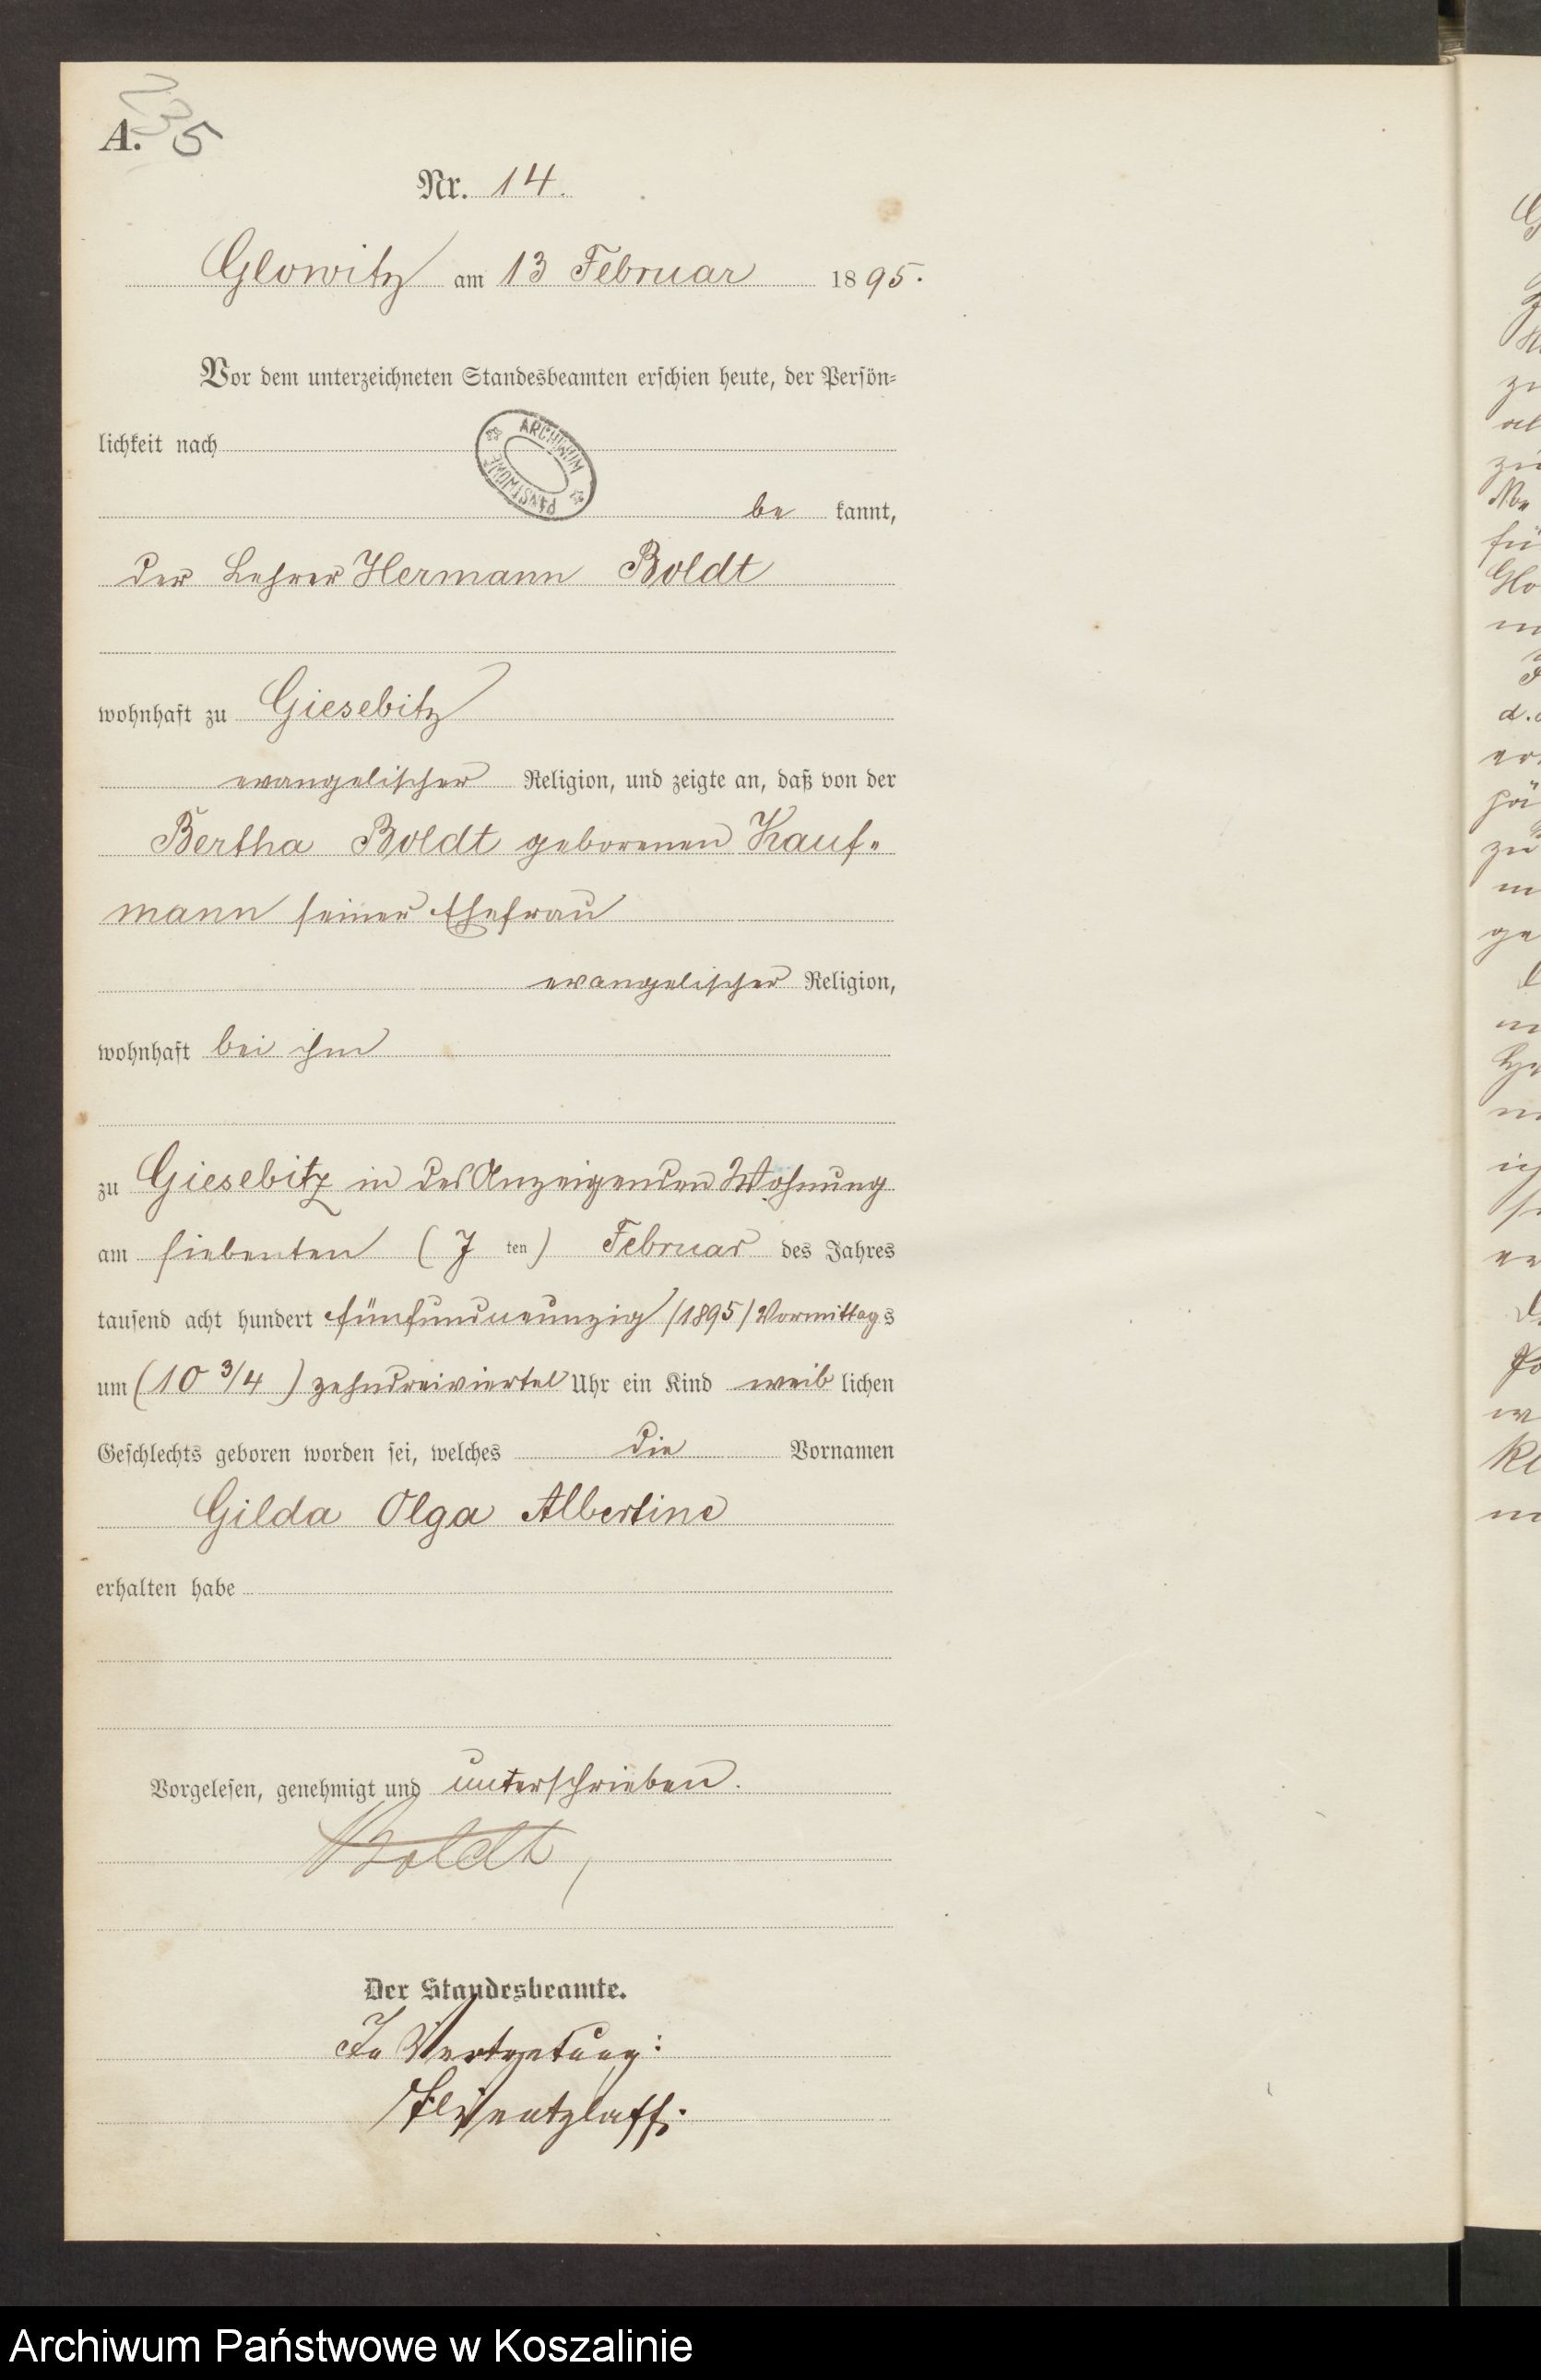 A. 235
Nr. 14.
Glowitz am 13 Februar 1895.
Vor dem unterzeichneten Standesbeamten erschien heute, der Persön-
lichkeit nach
ARCHIWUM PAŃSTWOWE
be kannt,
der Lehrer Hermann Boldt
wohnhaft zu Giesebitz
evangelischer Religion, und zeigte an, daß von der
Bertha Boldt geborenen Kauf-
mann seiner Ehefrau
evangelischer Religion,
wohnhaft bei ihm
zu Giesebitz in des Anzeigenden Wohnung
am siebenten (7 ten) Februar des Jahres
tausend acht hundert fünfundneunzig /1895/ Vormittags
um (10 3/4) zehndreiviertel Uhr ein Kind weib lichen
Geschlechts geboren worden sei, welches die Vornamen
Gilda Olga Albertine
erhalten habe
Vorgelesen, genehmigt und unterschrieben.
Boldt,
Der Standesbeamte.
In Vertretung:
Archiwum Państwowe w Koszalinie